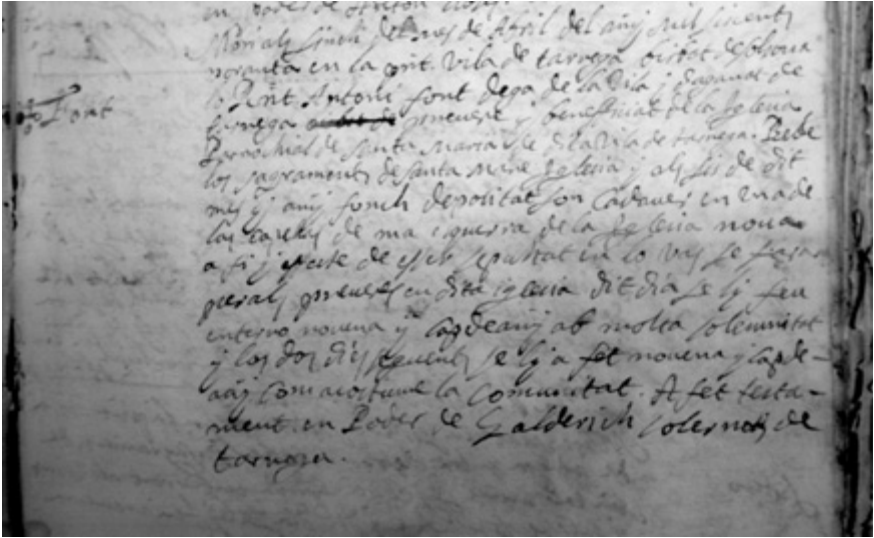 en poder de Anton
Mori als sinch del mes de Abril del añy mil siscents
noranta en la pnt. Vila de tarrega bisbat de solsona
lo Rnt. Antoni font dega de la Vila y deganat de
tarrega prevere y beneficiat de la Iglesia
Parrochial de Santa Maria de dita Vila de tarrega. Rebe
los sagraments de santa mare Iglesia y als sis de dit
mes y añy fonch depositat son Cadaver en una de
las capelas de ma esquerra de la Iglesia nova
a fi y efecte de esser sepultat en lo vas se fara
perals preveres en dita iglesia dit dia se li feu
enterro novena y capdeañy ab molta solemnitat
y los dos dies seguents se li a fet novena y capde-
añy com acostuma la Comunitat. A fet testa-
ment en Poder de Galderich not de
tarrega.
Font